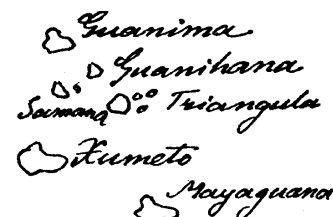 Guanima
Guanihana
Samana Triangula
Xumeto
Mayaguana